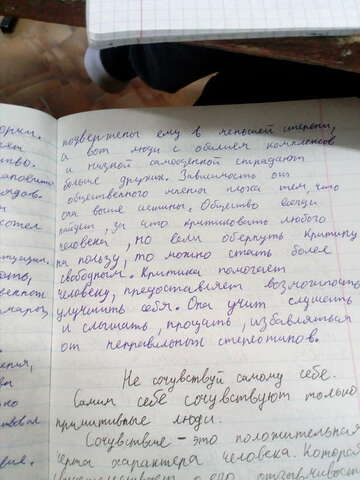 подвержены ему в меньшей степени,
а вот люди с обилием комплексов
и низкой самооценкой страдают
больше других. Зависимость от
общественного мнения плоха тем, что
она выше истины. Общество всегда
найдёт, за что критиковать любого
человека, но если обернуть критику
на пользу, то можно стать более
свободным. Критика помогает
человеку, предоставляет возможность
улучшить себя. Она учит слушать
и слышать, прощать, избавляться
от неправильных стереотипов.
Не сочувствуй самому себе.
Самим себе сочувствуют только
примитивные люди.
Сочувствие - это положительная
черта характера человека. Которая
его отзывчивость